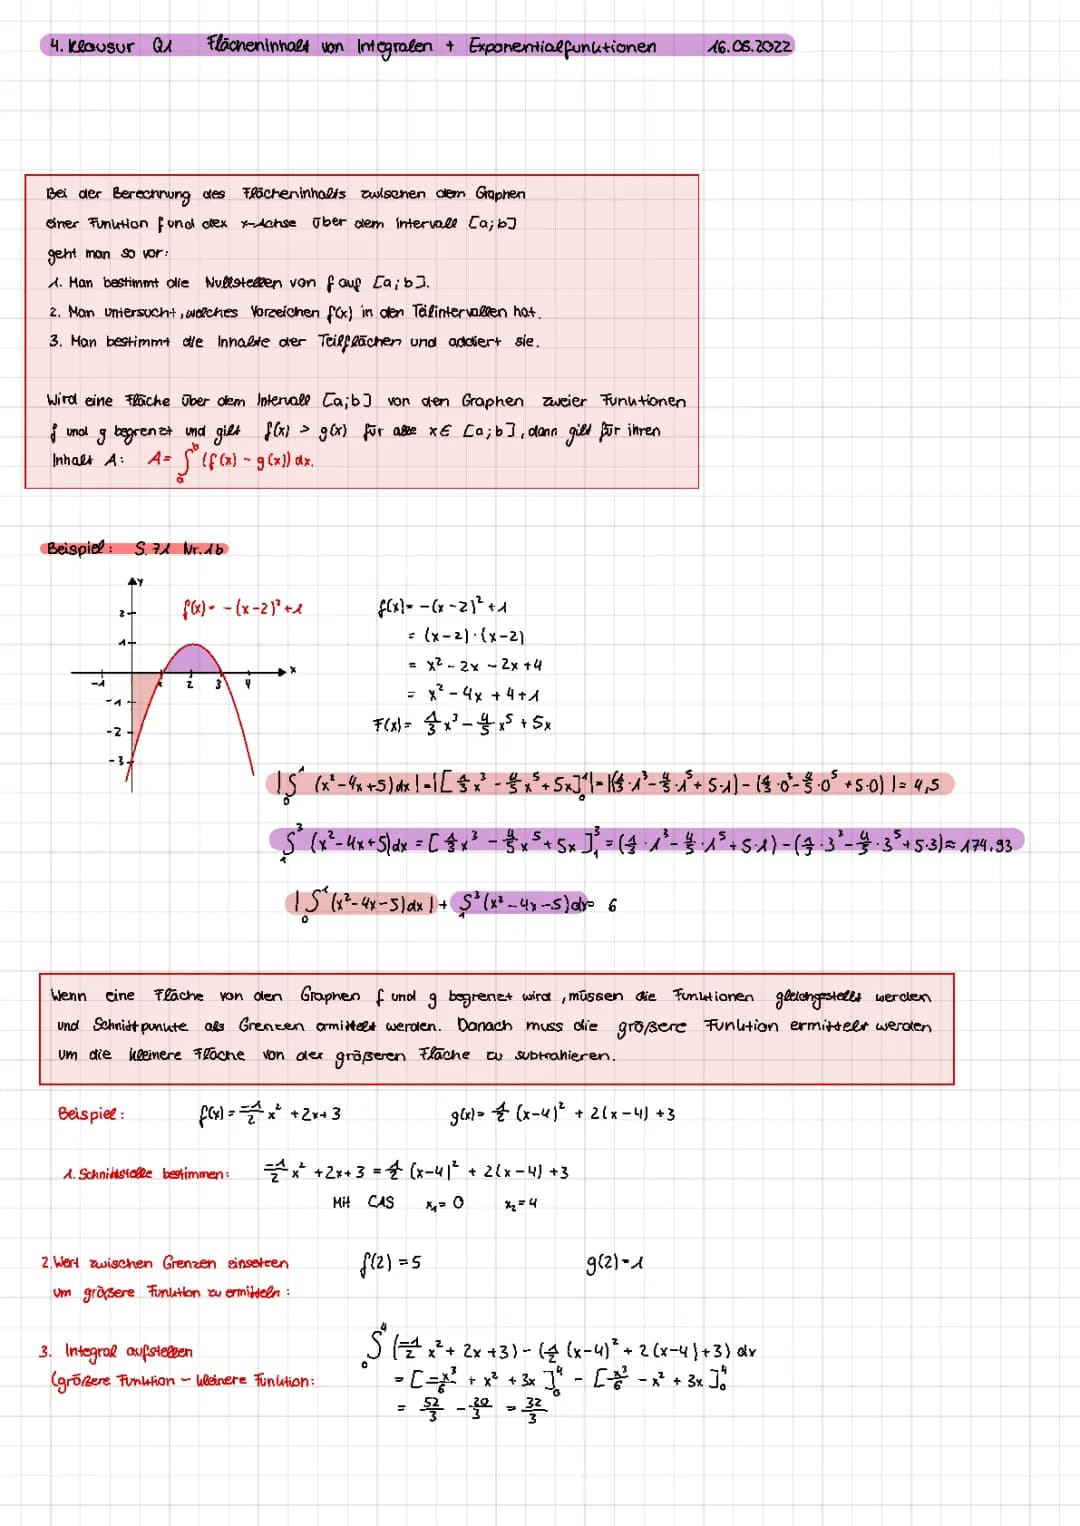 4. Klausur Q1 Flächeninhalt von Integralen + Exponentialfunktionen 16.05.2022
Bei der Berechnung des Flächeninhalts zwischen dem Graphen
einer Funktion f und der x-Achse über dem Intervall [a;b]
geht man so vor:
1. Man bestimmt die Nullstellen von f auf [a;b].
2. Man untersucht, welches Vorzeichen f(x) in den Teilintervallen hat.
3. Man bestimmt die Inhalte der Teilflächen und addiert sie.
Wird eine Fläche über dem Intervall [a;b] von den Graphen zweier Funktionen
f und g begrenzt und gilt f(x) > g(x) für alle x∈ [a;b], dann gilt für ihren
Inhalt A: A= ∫ₐᵇ (f(x) - g(x)) dx.
Beispiel: S.71 Nr.1b
f(x)= -(x-2)²+1
y
x
2
1
-1
1
2
3
4
-1
-2
-3
f(x)= -(x-2)²+1
= (x-2)·(x-2)
= x²-2x-2x+4
= x²-4x+4+1
F(x)= 1/3 x³ - 4/5 x⁵ + 5x
|∫₀¹ (x²-4x+5)dx| = |[1/3 x³ - 4/5 x⁵ + 5x]₀¹| = |(1/3·1³ - 4/5·1⁵ + 5·1) - (1/3·0³ - 4/5·0⁵ + 5·0)| = 4,5
∫₁³ (x²-4x+5)dx = [1/3 x³ - 4/5 x⁵ + 5x]₁³ = (1/3·1³ - 4/5·1⁵ + 5·1) - (1/3·3³ - 4/5·3⁵ + 5·3) ≈ 174,93
|∫₀¹ (x²-4x-5)dx| + ∫₁³ (x²-4x-5)dx = 6
Wenn eine Fläche von den Graphen f und g begrenzt wird, müssen die Funktionen gleichgestellt werden
und Schnittpunkte als Grenzen ermittelt werden. Danach muss die größere Funktion ermittelt werden
um die kleinere Fläche von der größeren Fläche zu subtrahieren.
Beispiel: f(x)= -1/2 x² + 2x + 3 g(x)= 1/2 (x-4)² + 2(x-4) + 3
1. Schnittstelle bestimmen: -1/2 x² + 2x + 3 = 1/2 (x-4)² + 2(x-4) + 3
Mit CAS x₁= 0 x₂=4
2. Wert zwischen Grenzen einsetzen f(2) = 5 g(2)=1
um größere Funktion zu ermitteln:
3. Integral aufstellen ∫₀⁴ (-1/2 x² + 2x + 3) - (1/2 (x-4)² + 2(x-4) + 3) dx
(größere Funktion - kleinere Funktion: = [-x³/6 + x² + 3x]₀⁴ - [x³/6 - x² + 3x]₀⁴
= 52/3 - 20/3 = 32/3